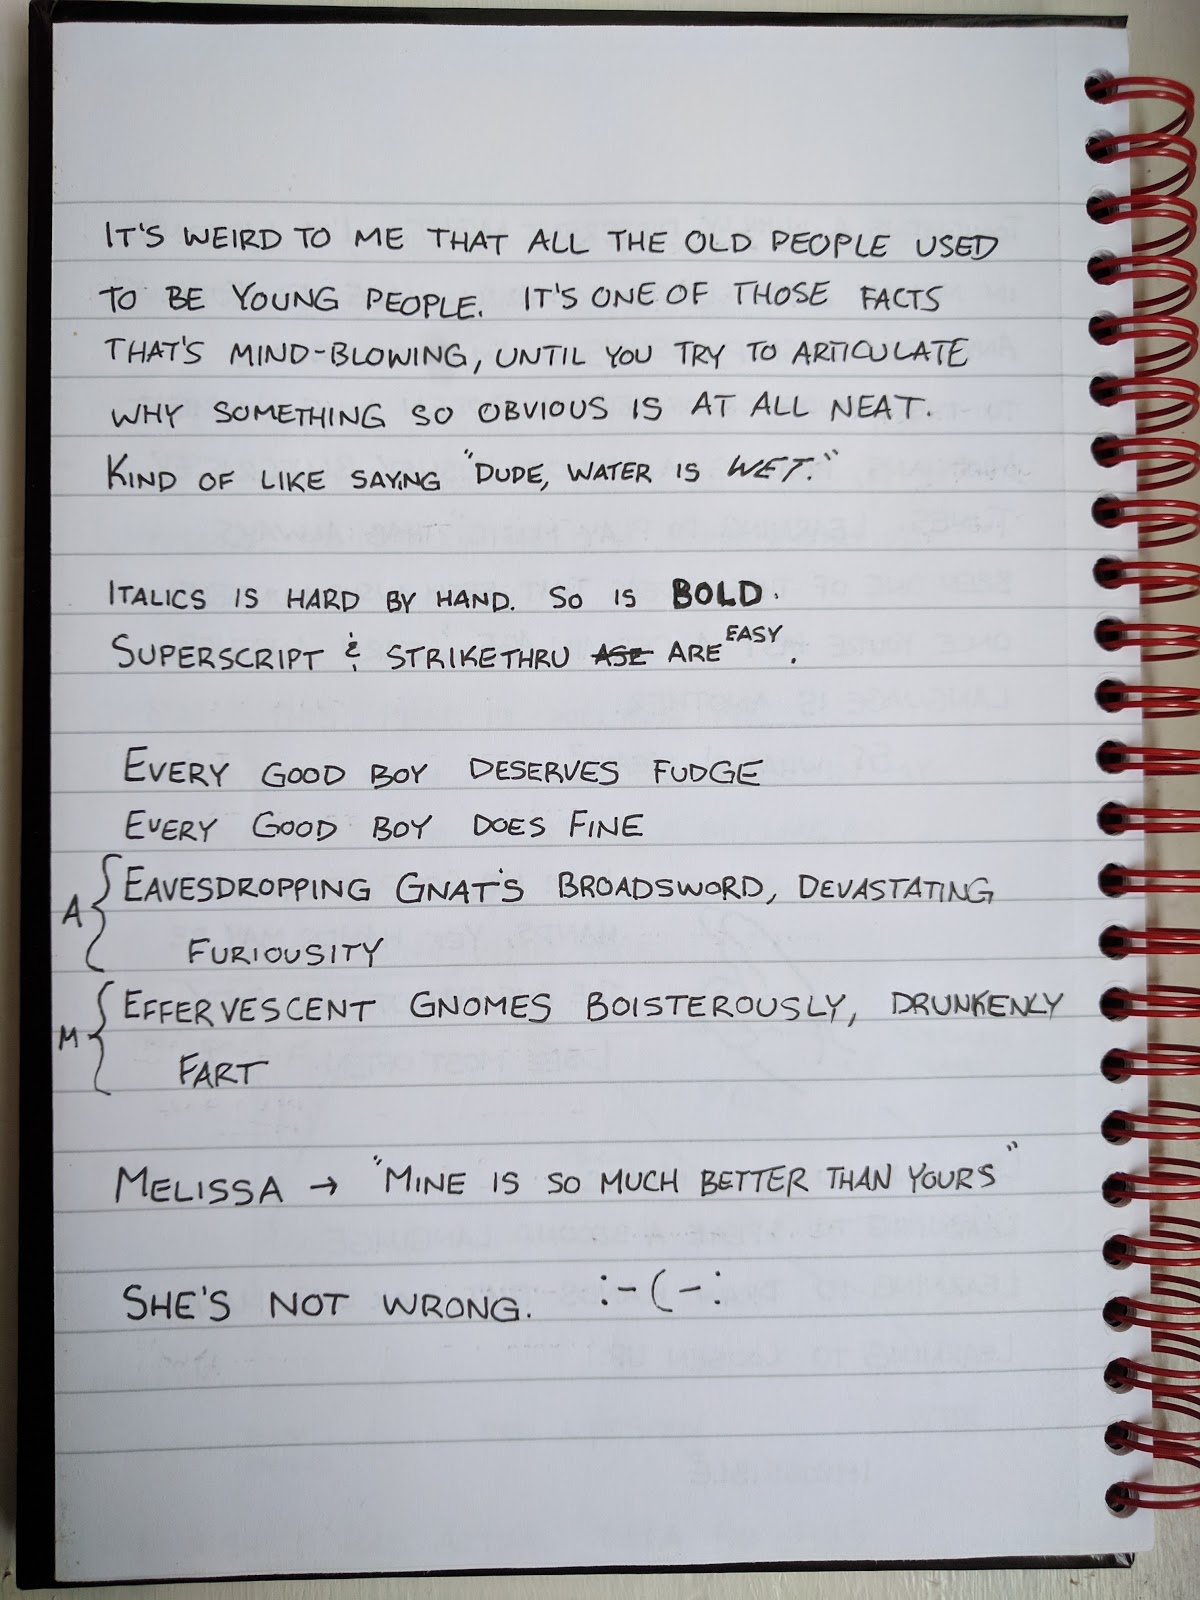 IT'S WEIRD TO ME THAT ALL THE OLD PEOPLE USED
TO BE YOUNG PEOPLE. IT'S ONE OF THOSE FACTS
THAT'S MIND-BLOWING, UNTIL YOU TRY TO ARTICULATE
WHY SOMETHING SO OBVIOUS IS AT ALL NEAT.
KIND OF LIKE SAYING "DUDE, WATER IS WET."
ITALICS IS HARD BY HAND. SO IS BOLD.
SUPERSCRIPT & STRIKETHRU ARE EASY.
EVERY GOOD BOY DESERVES FUDGE
EVERY GOOD BOY DOES FINE
A { EAVESDROPPING GNAT'S BROADSWORD, DEVASTATING
FURIOUSITY
M { EFFERVESCENT GNOMES BOISTEROUSLY, DRUNKENLY
FART
MELISSA → "MINE IS SO MUCH BETTER THAN YOURS"
SHE'S NOT WRONG. :-(-: